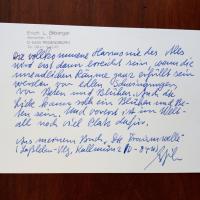 Erich L. Biberger
Die vollkommene Harmonie des Alls
wird erst dann erreicht sein, wenn die
unendlichen Räume ganz erfüllt sein
werden von edlen Schwingungen,
von Beten und Blühen. Auch die
Liebe kann solch ein Blühen und Be-
ten sein. Und vorerst ist im Welt-
all noch viel Platz dafür.
Aus meinem Buch „Die Traumwelle"